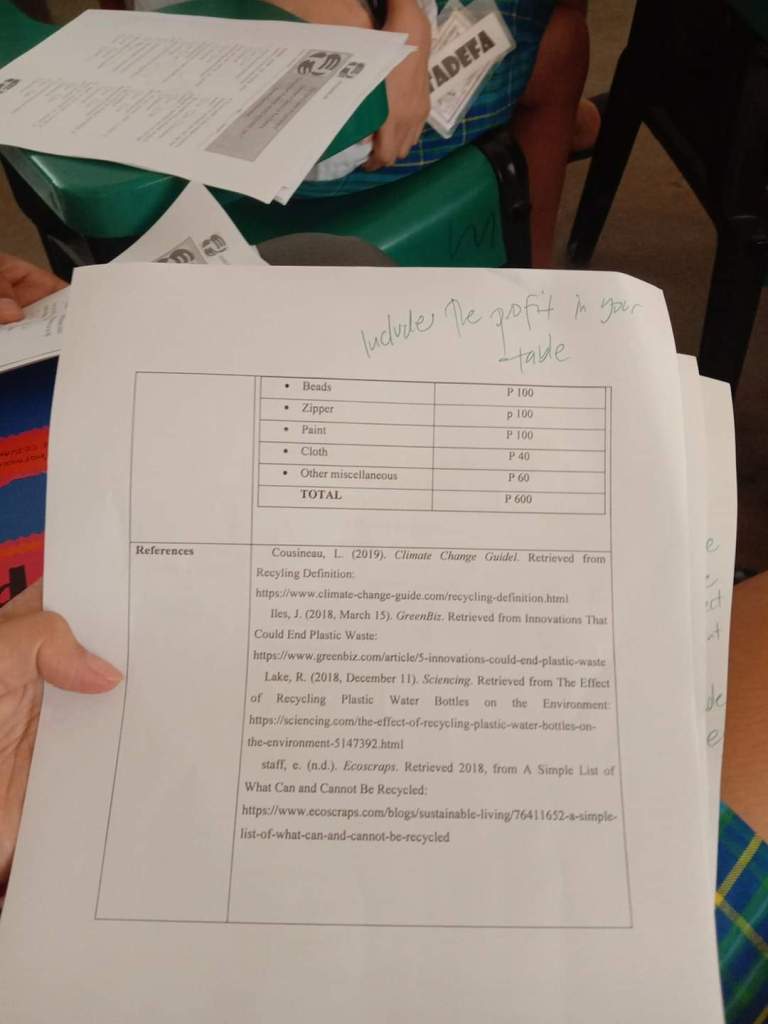 FADEFA
Include the profit in your
table
• Beads P 100
• Zipper p 100
• Paint P 100
• Cloth P 40
• Other miscellaneous P 60
TOTAL P 600
References
Cousineau, L. (2019). Climate Change Guidel. Retrieved from
Recyling Definition:
https://www.climate-change-guide.com/recycling-definition.html
Iles, J. (2018, March 15). GreenBiz. Retrieved from Innovations That
Could End Plastic Waste:
https://www.greenbiz.com/article/5-innovations-could-end-plastic-waste
Lake, R. (2018, December 11). Sciencing. Retrieved from The Effect
of Recycling Plastic Water Bottles on the Environment:
https://sciencing.com/the-effect-of-recycling-plastic-water-bottles-on-
the-environment-5147392.html
staff, e. (n.d.). Ecoscraps. Retrieved 2018, from A Simple List of
What Can and Cannot Be Recycled:
https://www.ecoscraps.com/blogs/sustainable-living/76411652-a-simple-
list-of-what-can-and-cannot-be-recycled